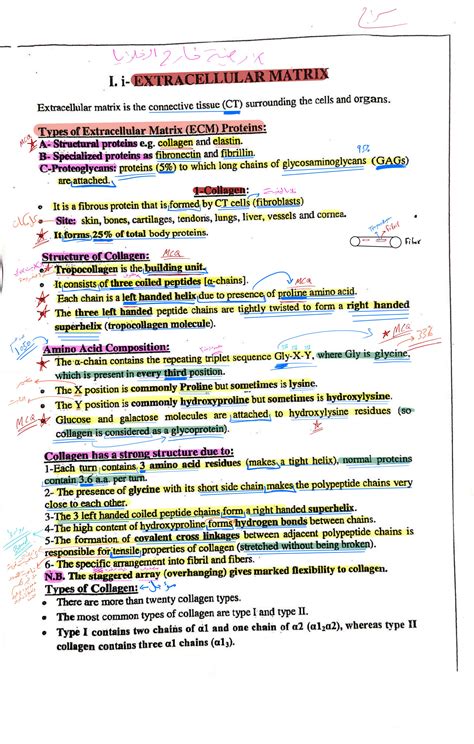 I. i- EXTRACELLULAR MATRIX
Extracellular matrix is the connective tissue (CT) surrounding the cells and organs.
Types of Extracellular Matrix (ECM) Proteins:
MCQ
A- Structural proteins e.g. collagen and elastin.
B- Specialized proteins as fibronectin and fibrillin.
95%
C-Proteoglycans: proteins (5%) to which long chains of glycosaminoglycans (GAGs)
are attached.
1-Collagen:
• It is a fibrous protein that is formed by CT cells (fibroblasts)
• Site: skin, bones, cartilages, tendons, lungs, liver, vessels and cornea.
• It forms 25% of total body proteins.
Fibril
Fiber
Structure of Collagen:
MCQ
• Tropocollagen is the building unit.
• It consists of three coiled peptides [α-chains].
MCQ
• Each chain is a left handed helix due to presence of proline amino acid.
• The three left handed peptide chains are tightly twisted to form a right handed
superhelix (tropocollagen molecule).
MCQ
33%
Amino Acid Composition:
• The α-chain contains the repeating triplet sequence Gly-X-Y, where Gly is glycine,
which is present in every third position.
• The X position is commonly Proline but sometimes is lysine.
• The Y position is commonly hydroxyproline but sometimes is hydroxylysine.
MCQ
• Glucose and galactose molecules are attached to hydroxylysine residues (so
collagen is considered as a glycoprotein).
Collagen has a strong structure due to:
1-Each turn contains 3 amino acid residues (makes a tight helix), normal proteins
contain 3.6 a.a. per turn.
2- The presence of glycine with its short side chain makes the polypeptide chains very
close to each other.
3-The 3 left handed coiled peptide chains form a right handed superhelix.
4-The high content of hydroxyproline forms hydrogen bonds between chains.
5-The formation of covalent cross linkages between adjacent polypeptide chains is
responsible for tensile properties of collagen (stretched without being broken).
6- The specific arrangement into fibril and fibers.
N.B. The staggered array (overhanging) gives marked flexibility to collagen.
Types of Collagen:
• There are more than twenty collagen types.
• The most common types of collagen are type I and type II.
• Type I contains two chains of α1 and one chain of α2 (α1₂α2), whereas type II
collagen contains three α1 chains (α1₃).